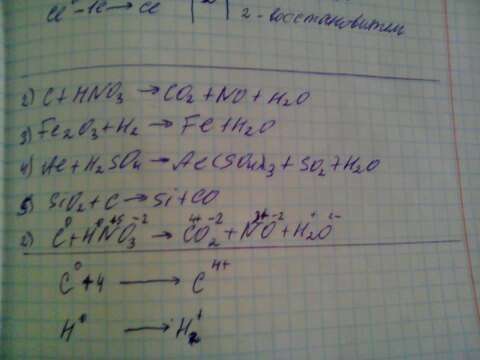 Cl⁰ - 1e → Cl | 2 |
2 - восстановитель
2) C + HNO₃ → CO₂ + NO + H₂O
3) Fe₂O₃ + H₂ → Fe + H₂O
4) Al + H₂SO₄ → Al(SO₄)₃ + SO₂ + H₂O
5) SiO₂ + C → Si + CO
2) C⁰ + H⁺N⁺⁵O₃⁻² → C⁴⁺O₂⁻² + N²⁺O⁻² + H₂⁺O²⁻
C⁰ + 4 → C⁴⁺
H⁰ → H₂⁺